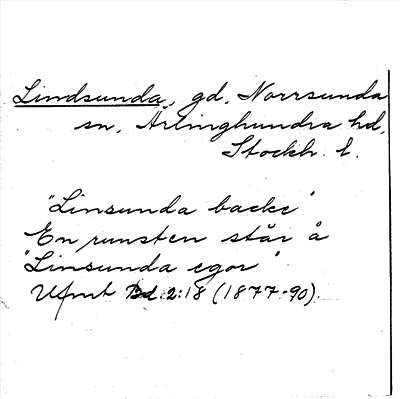 Lindsunda, gd, Norrsunda
sn, Ärlinghundra hd,
Stockh. l.
"Linsunda backe"
En runsten står å
"Linsunda egor"
Ufmt Bd. 2:18 (1877-90).